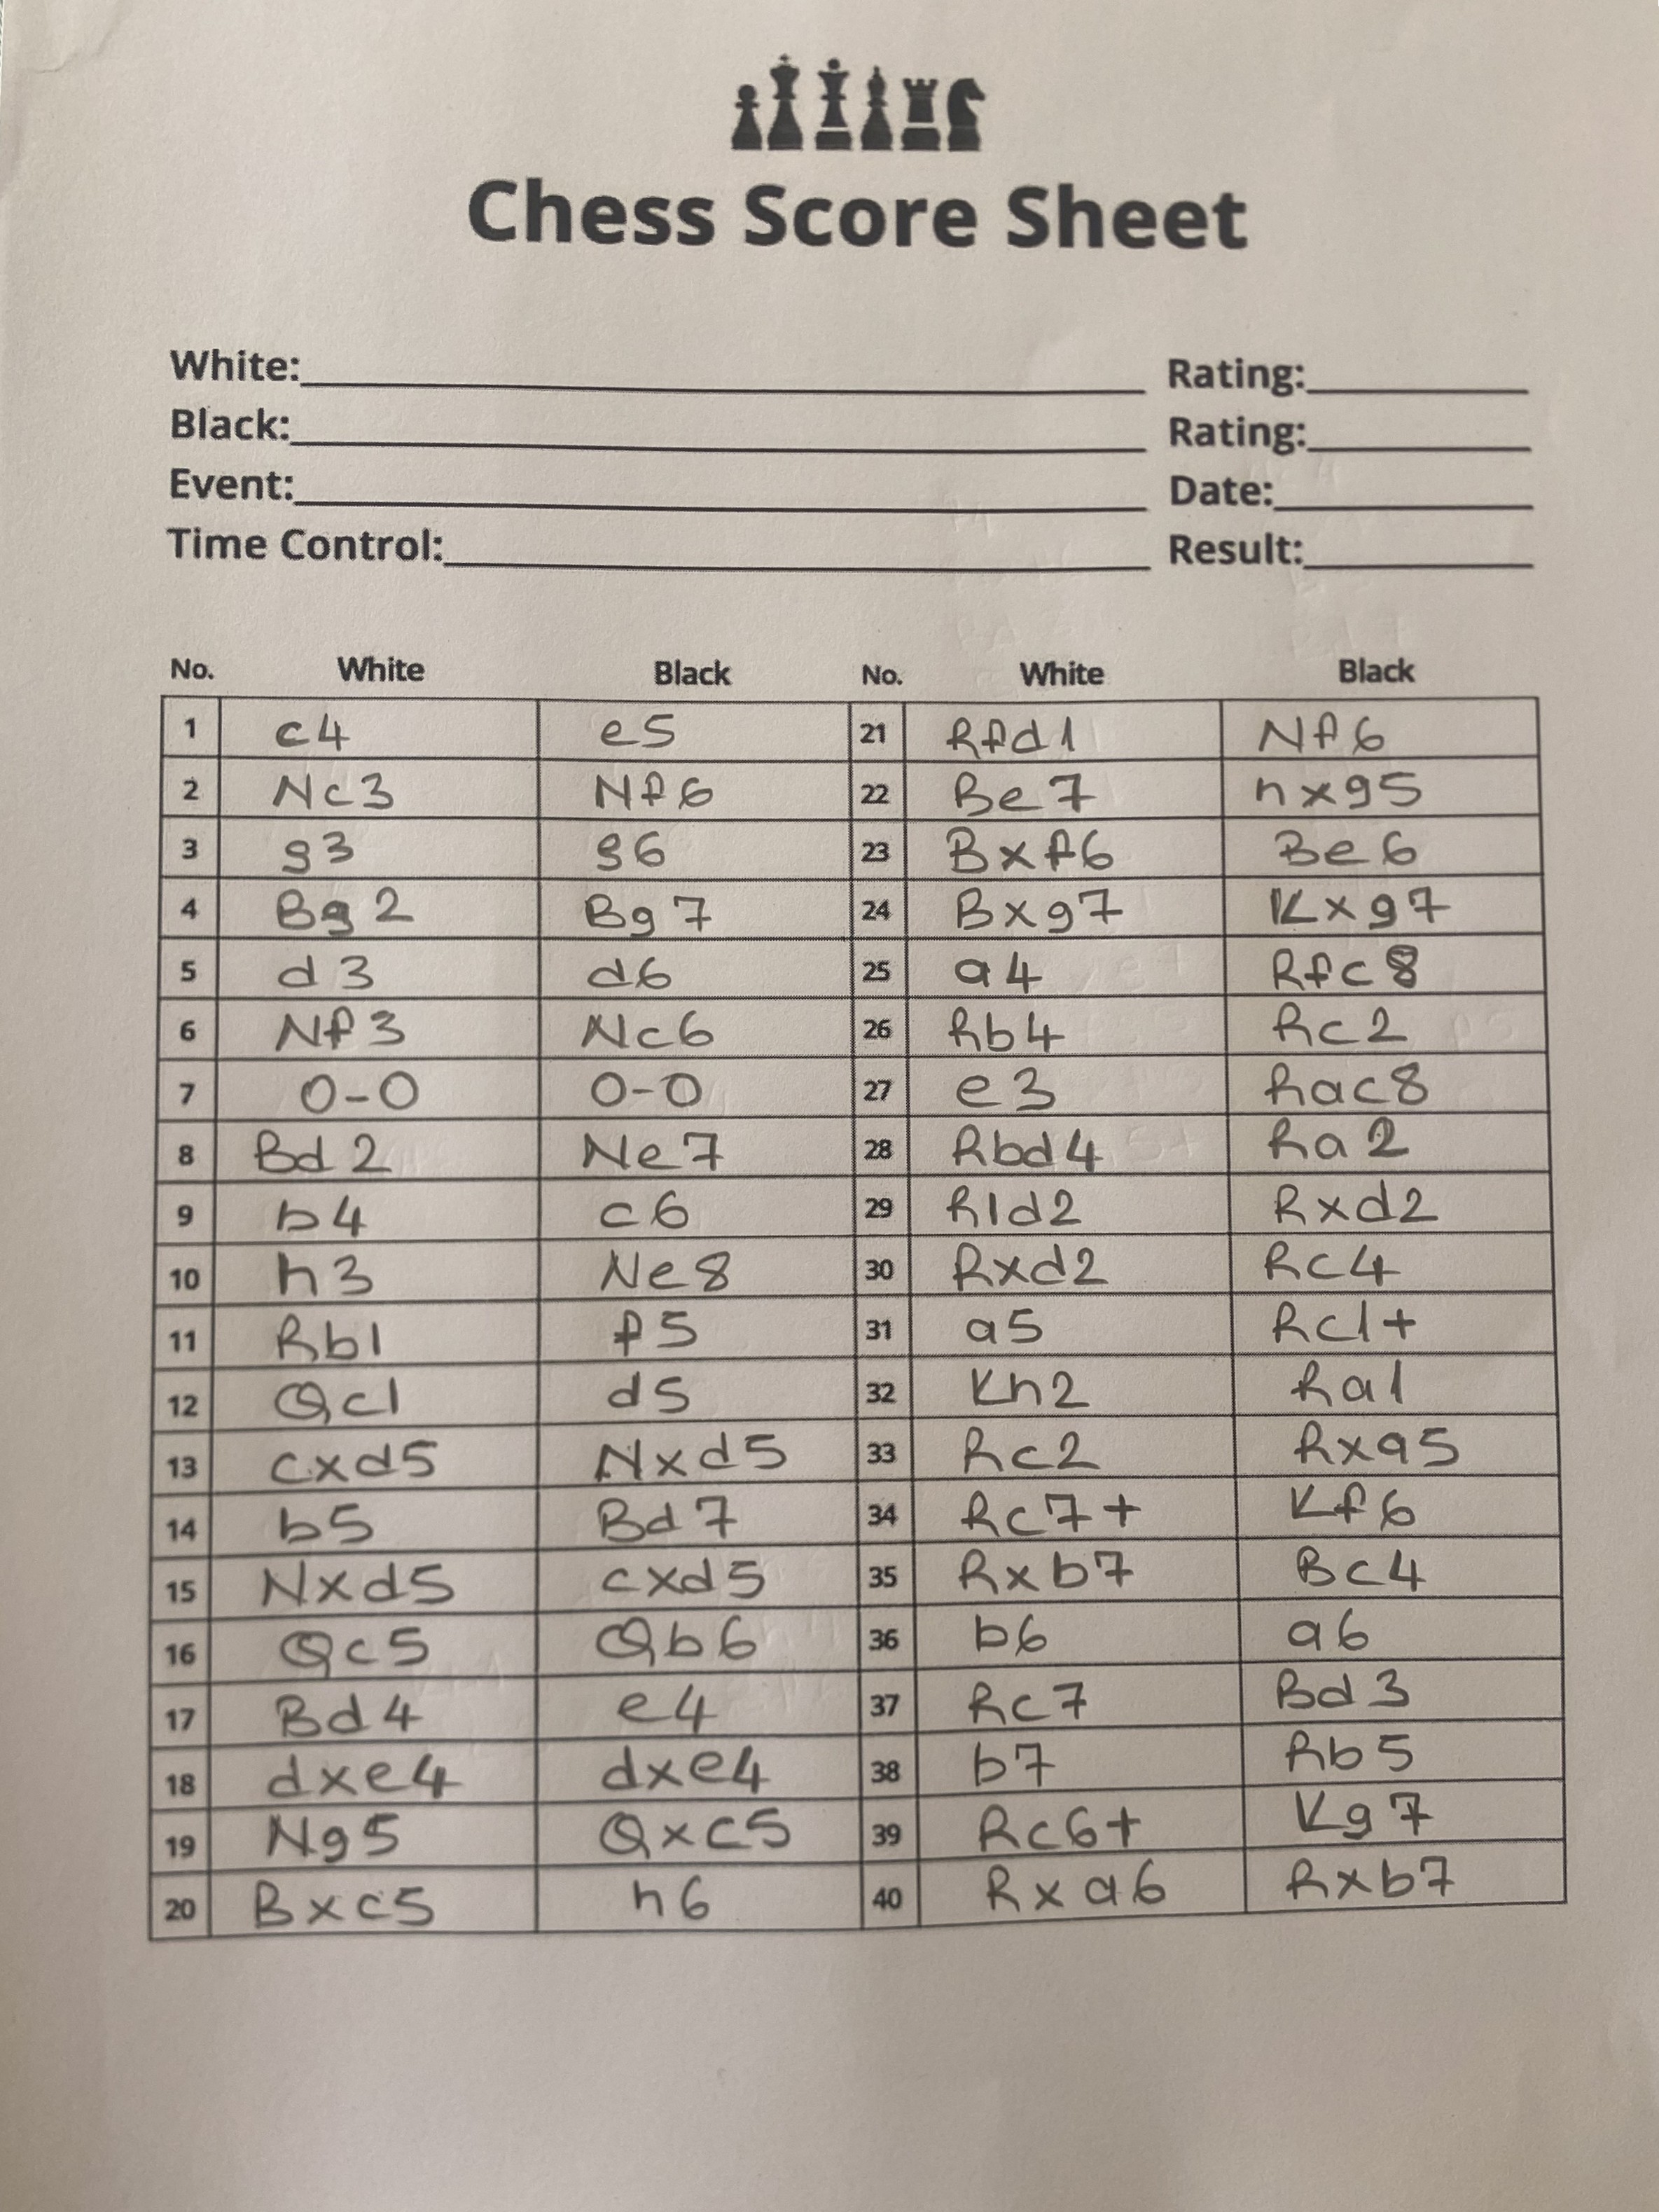 Chess Score Sheet
White: Rating:
Black: Rating:
Event: Date:
Time Control: Result:
No. White Black No. White Black
1 c4 e5 21 Rfd1 Nf6
2 Nc3 Nf6 22 Be7 hxg5
3 g3 g6 23 Bxf6 Be6
4 Bg2 Bg7 24 Bxg7 Kxg7
5 d3 d6 25 a4 Rfc8
6 Nf3 Nc6 26 Rb4 Rc2
7 0-0 0-0 27 e3 Rac8
8 Bd2 Ne7 28 Rbd4 Ra2
9 b4 c6 29 R1d2 Rxd2
10 h3 Ne8 30 Rxd2 Rc4
11 Rb1 f5 31 a5 Rc1+
12 Qc1 d5 32 Kh2 Ra1
13 cxd5 Nxd5 33 Rc2 Rxa5
14 b5 Bd7 34 Rc7+ Kf6
15 Nxd5 cxd5 35 Rxb7 Bc4
16 Qc5 Qb6 36 b6 a6
17 Bd4 e4 37 Rc7 Bd3
18 dxe4 dxe4 38 b7 Rb5
19 Ng5 Qxc5 39 Rc6+ Kg7
20 Bxc5 h6 40 Rxa6 Rxb7